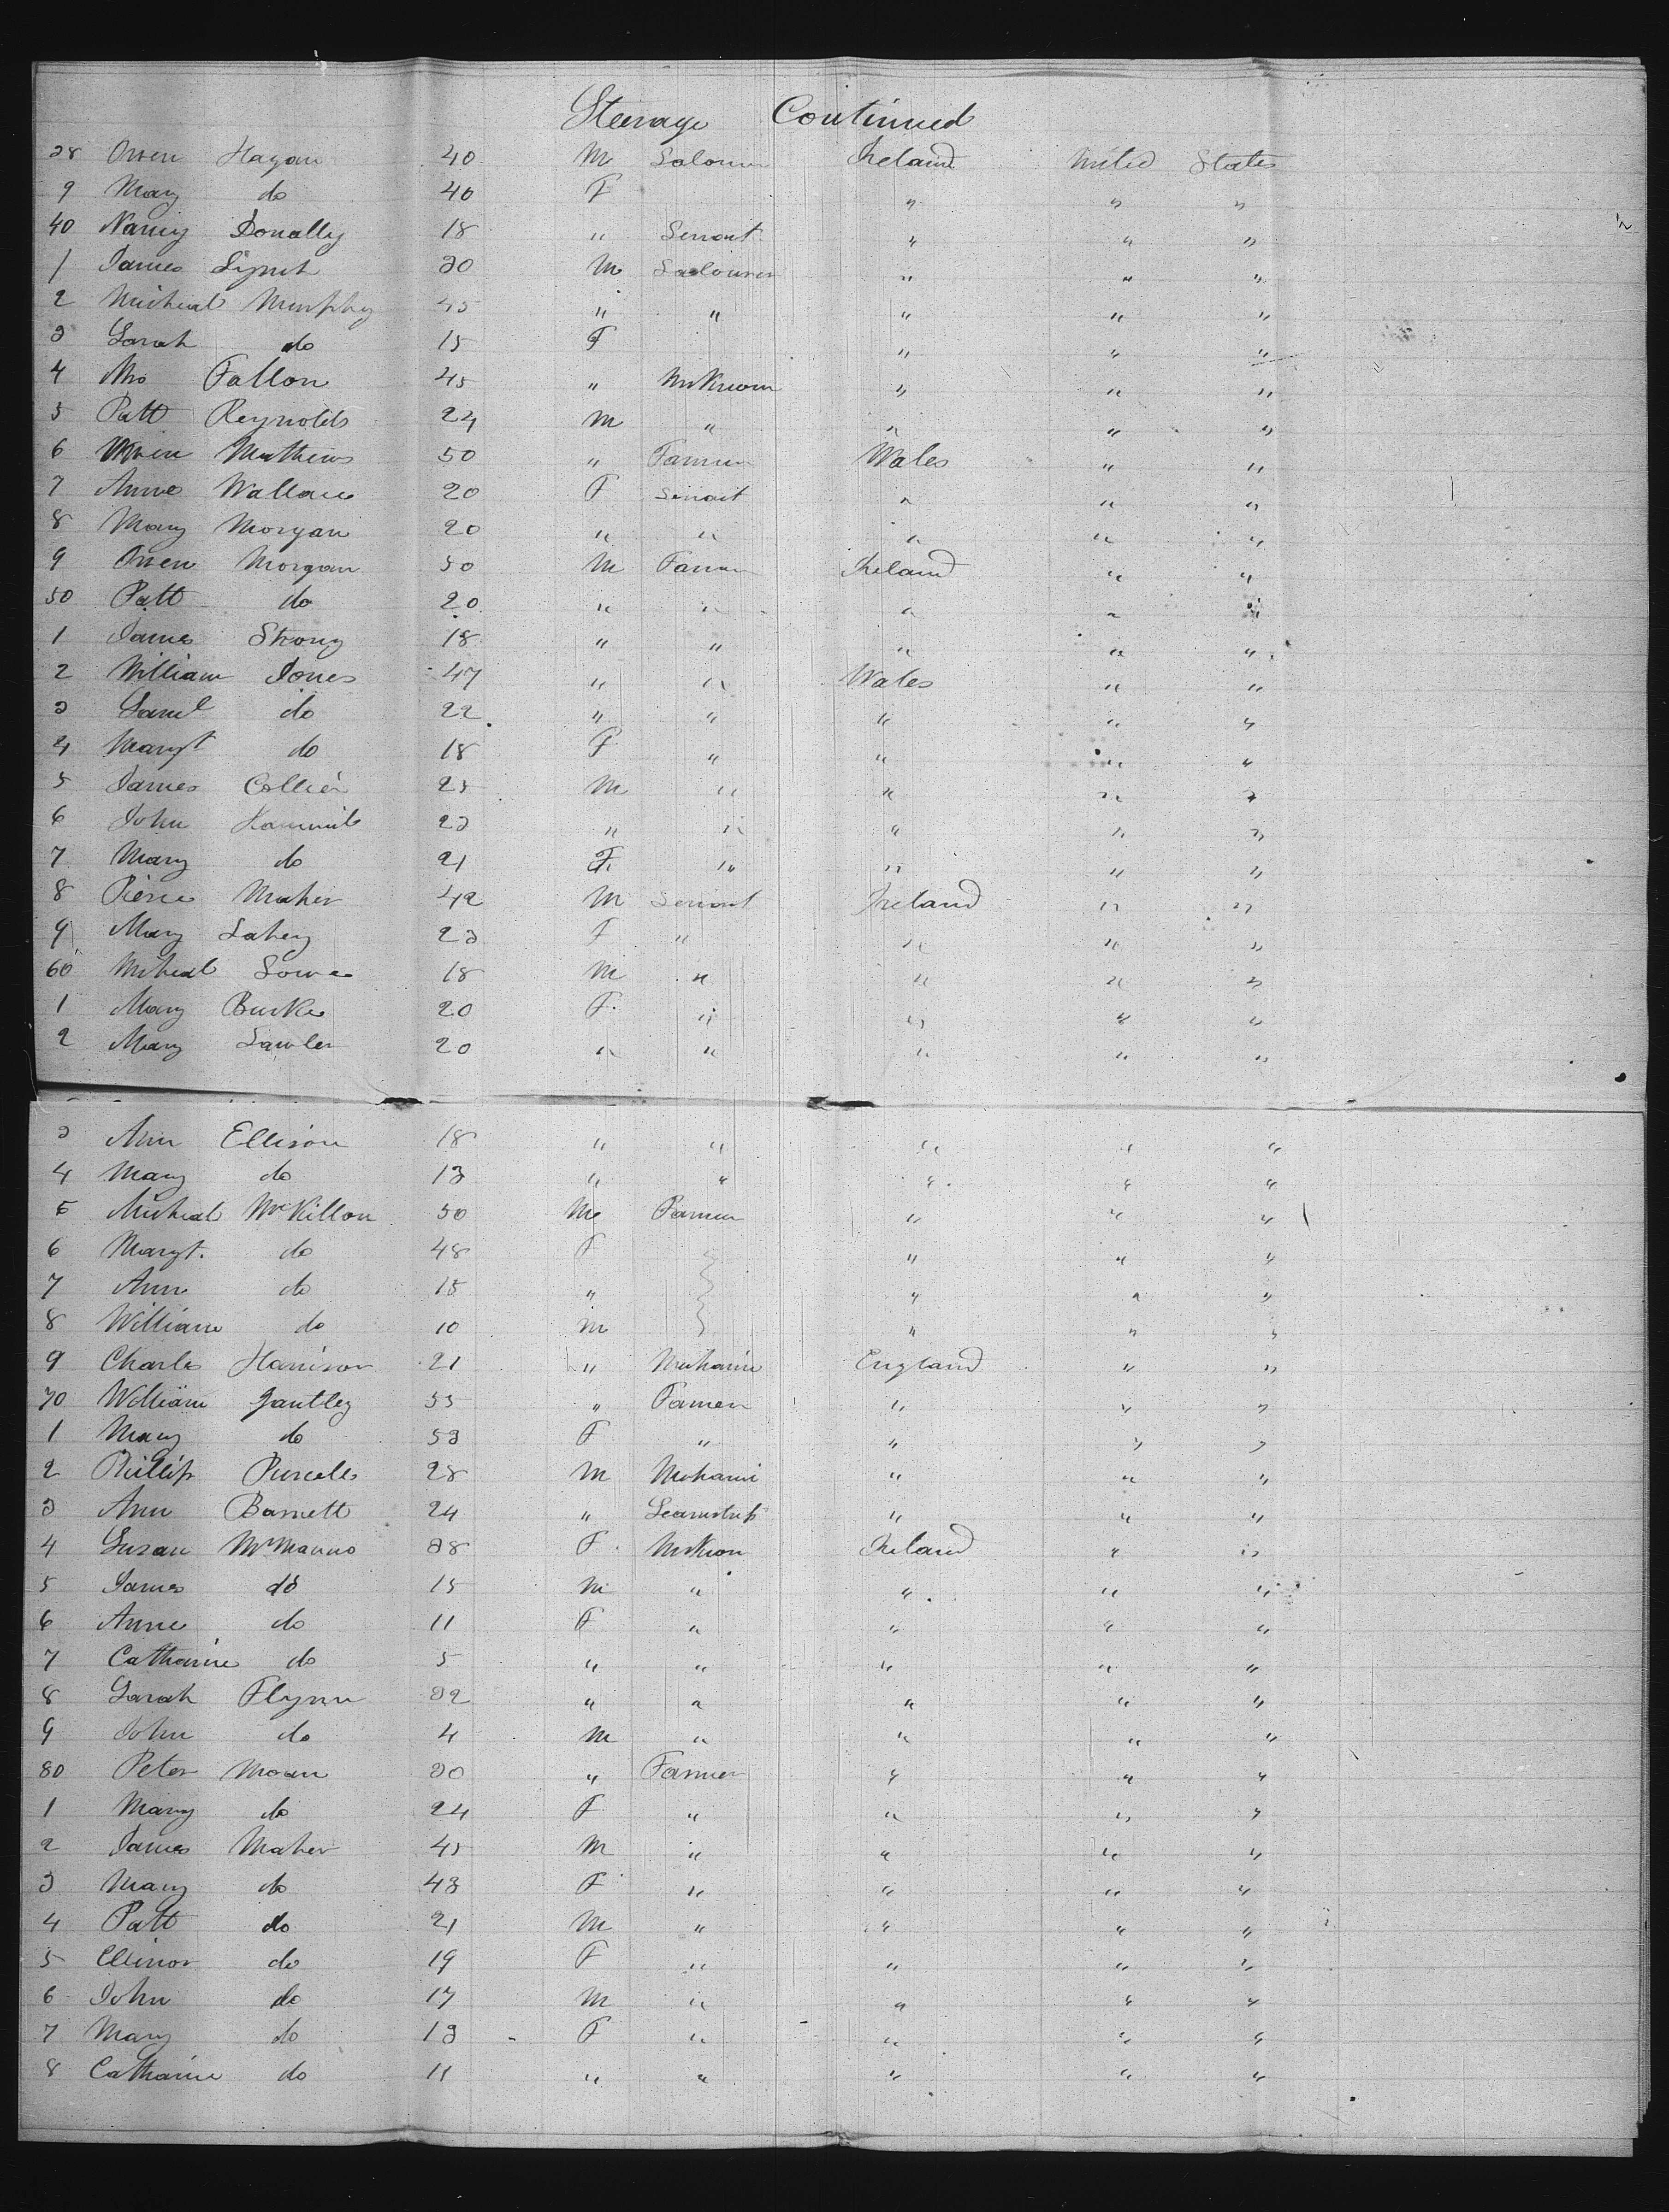 Steerage Continued
38 Owen Hagan 40 M Labourer Ireland United States
9 Mary do 40 F " " "
40 Nancy Donally 18 " Servant " " "
1 James Lynch 30 M Labourer " " "
2 Micheal Murphy 45 " " " " "
3 Sarah do 15 F " " "
4 Mrs Fallon 45 " Unknown " " "
5 Patt Reynolds 24 M " " " "
6 Mathews 50 " Farmer Wales " "
7 Anne Wallace 20 F Servant " " "
8 Mary Morgan 20 " " " " "
9 Owen Morgan 50 M Farmer Ireland " "
50 Patt do 20 " " " " "
1 James Strong 18 " " " " "
2 William Jones 47 " " Wales " "
3 Saml do 22 " " " " "
4 Margt do 18 F " " " "
5 James Collier 25 M " " " "
6 John Hammil 23 " " " " "
7 Mary do 21 F " " " "
8 Pierce Maher 42 M Servant Ireland " "
9 Mary Lahey 23 F " " " "
60 Micheal 18 M " " " "
1 Mary Burke 20 F " " " "
2 Mary Lawler 20 " " " " "
3 Ann Ellison 18 " " " " "
4 Mary do 13 " " " " "
5 Micheal McKillon 50 M Farmer " " "
6 Margt. do 48 F " " "
7 Ann do 15 " " " "
8 William do 10 M " " "
9 Charles Harrison 21 " Mechanic England " "
70 William Gantley 55 " Farmer " " "
1 Mary do 53 F " " " "
2 Phillip Purcell 28 M Mechanic " " "
3 Ann Barnett 24 " " " "
4 Susan McManus 38 F Unknon Ireland " "
5 James do 15 M " " " "
6 Anne do 11 F " " " "
7 Catharine do 5 " " " " "
8 Sarah Flynn 32 " " " " "
9 John do 4 M " " " "
80 Peter Moan 30 " Farmer " " "
1 Mary do 24 F " " " "
2 James Maher 45 M " " " "
3 Mary do 43 F " " " "
4 Patt do 21 M " " " "
5 Ellinor do 19 F " " " "
6 John do 17 M " " " "
7 Mary do 13 F " " " "
8 Catharine do 11 " " " " "